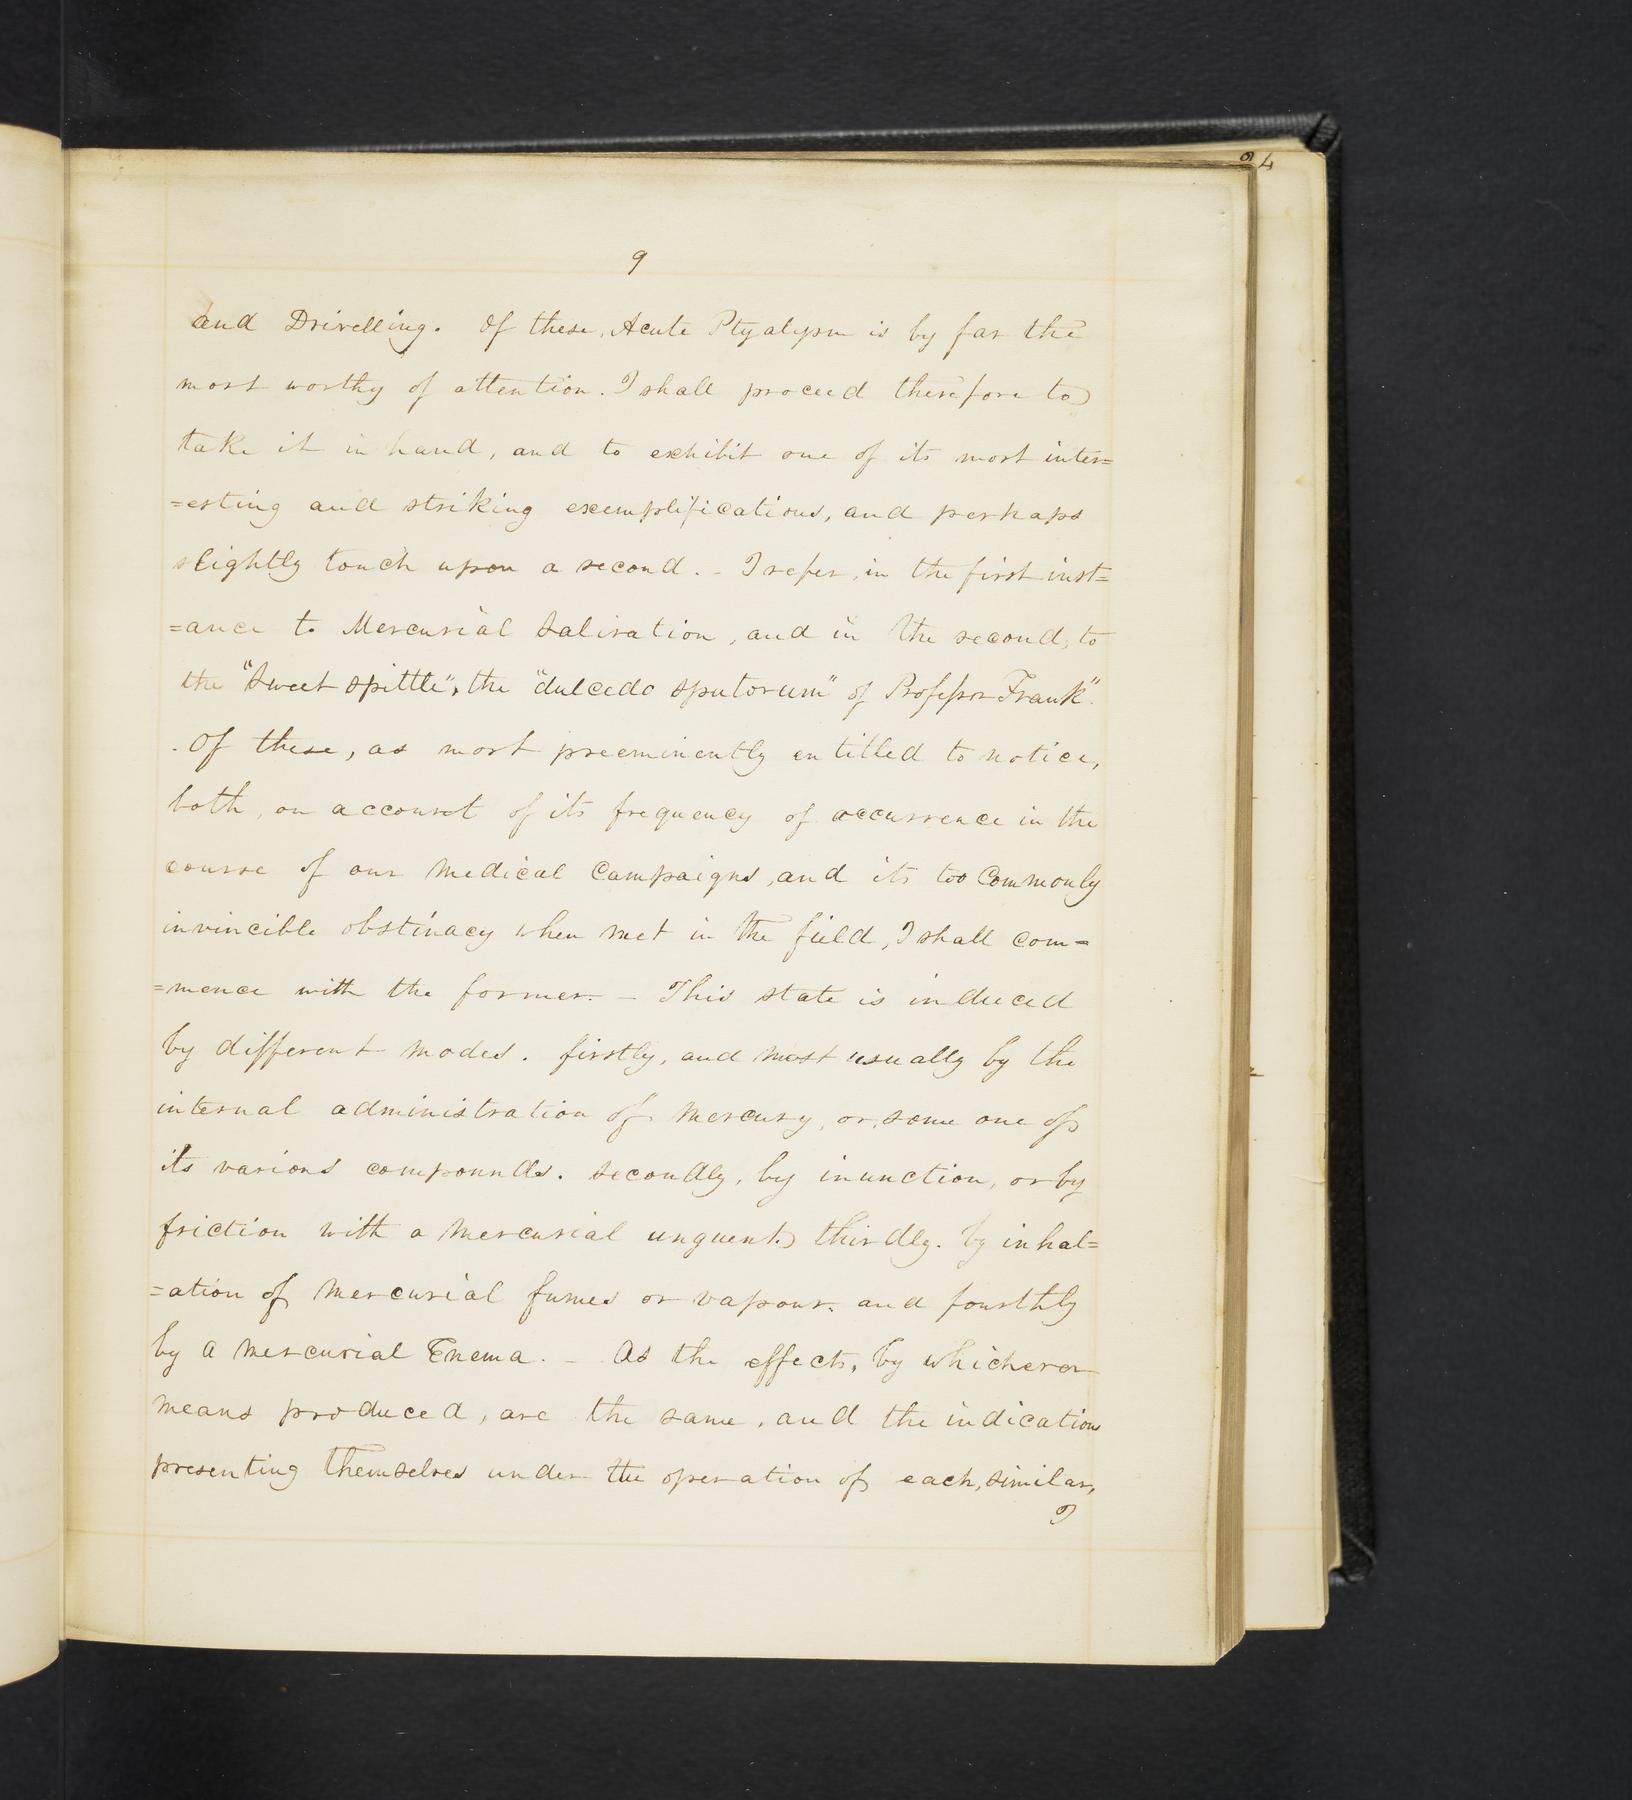 9
and Drivelling. Of these, Acute Ptyalysm is by far the
most worthy of attention. I shall proceed therefore to
take it in hand, and to exhibit one of its most inter=
=esting and striking exemplifications, and perhaps
slightly touch upon a second. - I refer, in the first inst=
=ance to Mercurial Salivation, and in the second, to
the "Sweet spittle", the "dulcedo sputorum" of Professor Frank".
. Of these, as most preeminently entitled to notice,
both, on account of its frequency of occurrence in the
course of our Medical Campaigns, and its too Commonly
invincible obstinacy when met in the field, I shall com=
=mence with the former. - This state is induced
by different modes. firstly, and most usually by the
internal administration of Mercury, or, some one of
its various compounds. secondly, by inunction, or by
friction with a Mercurial unguent. thirdly. by inhal=
=ation of Mercurial fumes or vapour. and fourthly
by a Mercurial Enema. - As the effects, by whichever
means produced, are the same, and the indications
presenting themselves under the operation of each, similar,
I